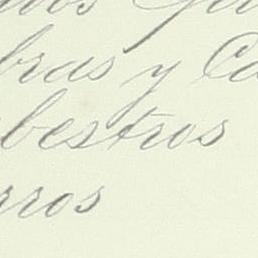 bras y Ca
bestros
rros